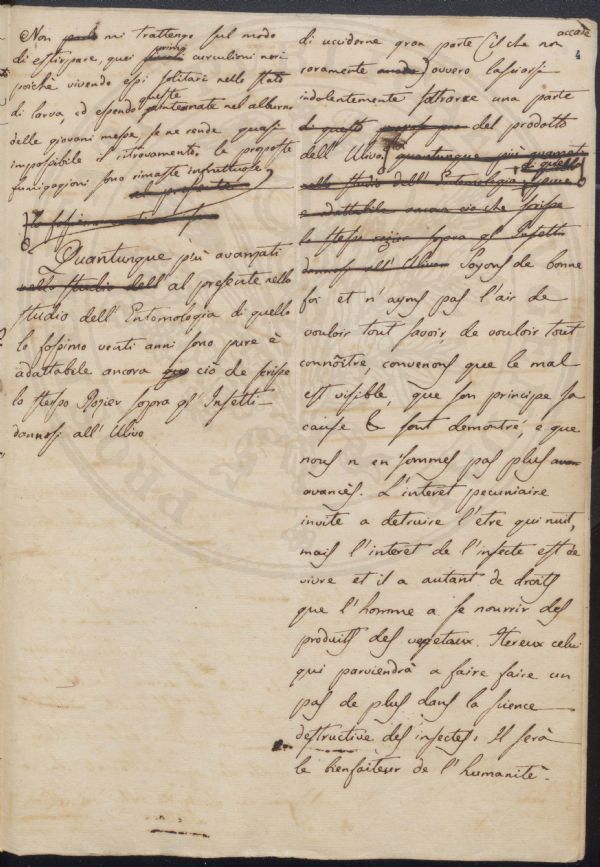 Non mi trattengo sul modo
di estirpare, quei primi curculioni neri
poichè vivendo essi solitarî nello stato
di larva, ed essendo queste internate nel alburno
delle giovani messe, se ne rende quasi
impossibile il ritrovamento. le proposte
fumigagioni sono rimaste infruttuose
al presente
lo fossimo
Quantunque più avanzati
nello studio dell al presente nello
studio dell'Entomologia di quello
lo fossimo venti anni sono pure è
adattabele ancora ciò che scrisse
lo stesso Rozier sopra gl'Insetti
dannosi all'Ulivo
accade
4
di ucciderne gran parte (il che non
raramente ) ovvero lasciarsi
indolentemente sottrarre una parte
di questo del prodotto
dell Ulivo. quantunque più avanzati
di quello
nello studio dell'Entomologia pure
e adattabile ancora ciò che scrisse
lo stesso sopra gl'Insetti
dannosi all'Ulivo Soyons de bonne
foi et n'ayons pas l'air de
vouloir tout savoir, de vouloir tout
connôitre, convenons que le mal
est visible, que son principe sa
cause & sont demontré, e que
nous n en sommes pas plus avan
avancès. L'interet pecuniaire
invite a detruire l'etre qui nuit,
mais l'interet de l'insecte est de
vivre et il a autant de droits
que l'homme a se nourrir des
produits des vegetaux. Hereux celui
qui parviendrà a faire faire un
pas de plus dans la science
destructive des insectes, Il serà
le bienfaiteur de l'humanitè.